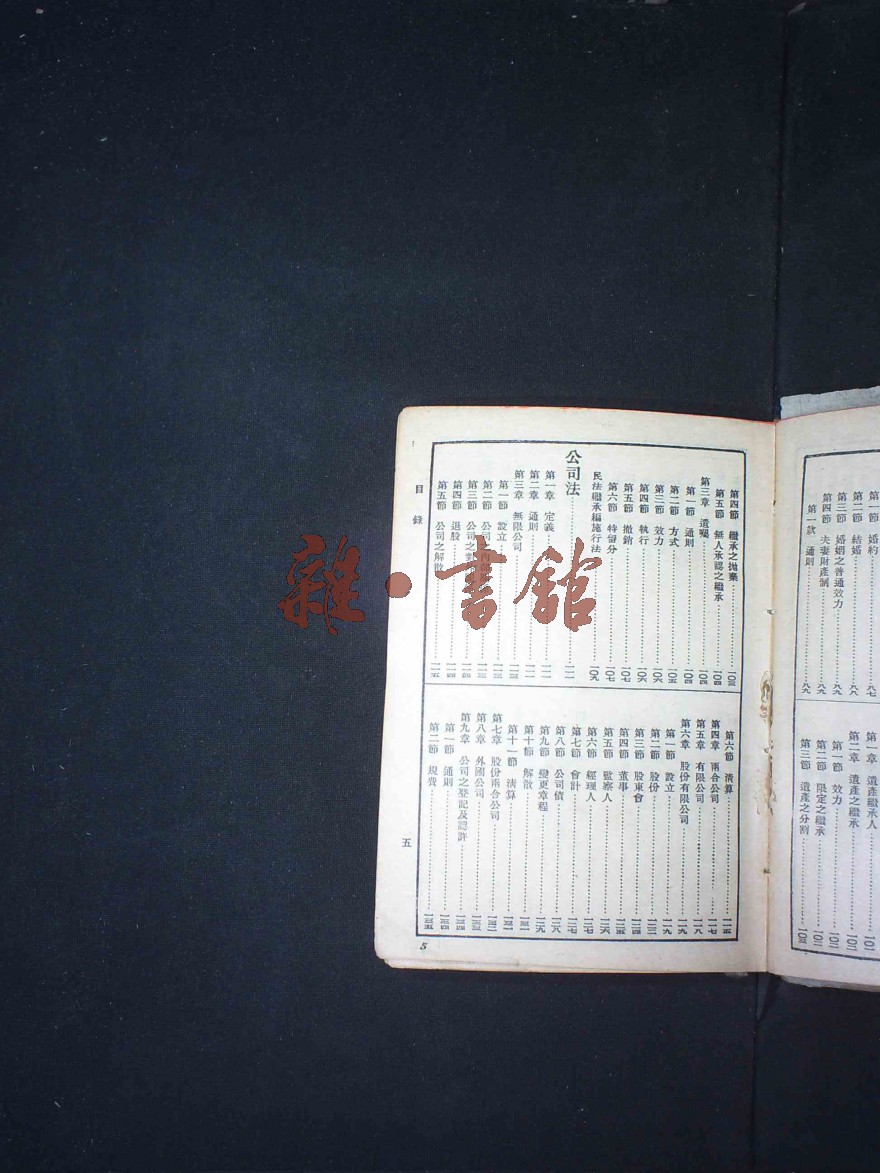 第四節　繼承之拋棄……一〇三
第五節　無人承認之繼承……一〇四
第三章　遺囑……一〇四
第一節　通則……一〇四
第二節　方式……一〇五
第三節　效力……一〇六
第四節　執行……一〇六
第五節　撤銷……一〇七
第六節　特留分……一〇七
民法繼承編施行法……一〇九
公司法……一一一
第一章　定義……一一一
第二章　通則……一一一
第三章　無限公司……一一二
第一節　設立……一一二
第二節　公司之內部……一一三
第三節　公司之對……一一四
第四節　退股……一一四
第五節　公司之解散……一一五
第六節　清算……一一五
第四章　兩合公司……一一七
第五章　有限公司……一一八
第六章　股份有限公司……一一九
第一節　設立……一一九
第二節　股份……一二二
第三節　股東會……一二四
第四節　董事……一二五
第五節　監察人……一二六
第六節　經理人……一二七
第七節　會計……一二七
第八節　公司債……一二八
第九節　變更章程……一二九
第十節　解散……一三一
第十一節　清算……一三一
第七章　股份兩合公司……一三二
第八章　外國公司……一三三
第九章　公司之登記及認許……一三四
第一節　通則……一三四
第二節　規費……一三五
目錄
五
5
第一節　婚約……八七
第二節　結婚……八八
第三節　婚姻之普通效力……八八
第四節　夫妻財產制……八九
第一款　通則……八九
第一章　遺產繼承人……一〇一
第二章　遺產之繼承……一〇二
第一節　效力……一〇二
第二節　限定之繼承……一〇二
第三節　遺產之分割……一〇三
雜·書館